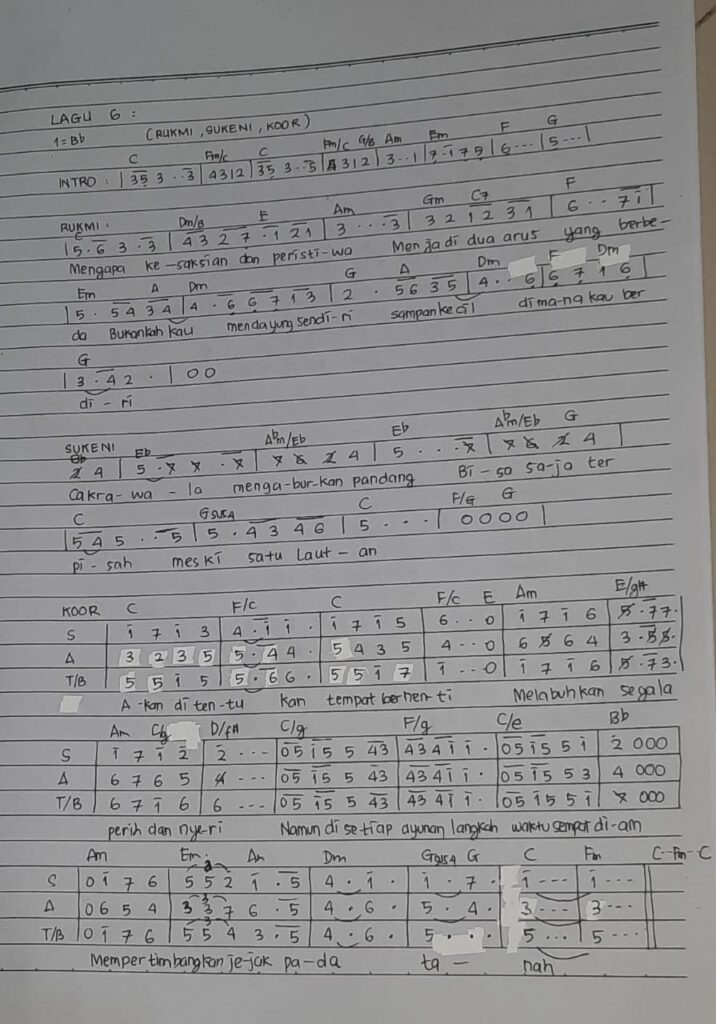 LAGU 6 :
1=Bb (RUKMI, SUKENI, KOOR)
C Fm/C C Fm/C G/B Am Em F G
INTRO : | 35 3 . . 3 | 4312 | 35 3 . . 5 | 4 312 | 3 . . 1 | 7 . 1 7 5 | 6 . . . | 5 . . . |
RUKMI :
C Dm/B E Am Gm C7 F
| 5 . 6 3 . 3 | 4 3 2 7 . 1 2 1 | 3 . . . 3 | 3 2 1 2 3 1 | 6 . . 7 1 |
Mengapa ke-saksian dan peristi-wa Menjadi dua arus yang berbe-
Em A Dm G A Dm F Dm
| 5 . 5 4 3 4 | 4 . 6 6 7 1 3 | 2 . 5 6 3 5 | 4 . . 6 | 6 7 1 6 |
da Bukankah kau mendayung sendi-ri sampan kecil dimana kau ber
G
| 3 . 4 2 . | 0 0
di - ri
SUKENI
Eb Abm/Eb Eb Abm/Eb G
4 | 5 . 4 | 5 . . . 4 |
Cakra-wa-la menga-bur-kan pandang Bi-sa sa-ja ter
C Gsus4 C F/G G
| 5 4 5 . . 5 | 5 . 4 3 4 6 | 5 . . . | 0 0 0 0 |
pi-sah meski satu laut-an
KOOR C F/c C F/c E Am E/g#
S | 1 7 1 3 | 4 . 1 1 . | 1 7 1 5 | 6 . . 0 | 1 7 1 6 | 5 . 7 7 .
A | 3 2 3 5 | 5 . 4 4 . | 5 4 3 5 | 4 . . 0 | 6 5 6 4 | 3 . 5 5 .
T/B | 5 5 1 5 | 5 . 6 6 . | 5 5 1 7 | 1 . . 0 | 1 7 1 6 | 5 . 7 3 .
A-kan di ten-tu kan tempat berhen-ti Melabuhkan segala
Am C/g D/f# C/g F/g C/e Bb
S | 1 7 1 2 | 2 . . . | 0 5 1 5 5 4 3 | 4 3 4 1 1 . | 0 5 1 5 5 1 | 2 000
A | 6 7 6 5 | 4 . . . | 0 5 1 5 5 4 3 | 4 3 4 1 1 . | 0 5 1 5 5 3 | 4 000
T/B | 6 7 1 6 | 6 . . . | 0 5 1 5 5 4 3 | 4 3 4 1 1 . | 0 5 1 5 5 1 | 000
perih dan nye-ri Namun di setiap ayunan langkah waktu sempat di-am
Am Em Am Dm Gsus4 G C Fm C--Fm-C
S | 0 1 7 6 | 5 5 2 1 . 5 | 4 . 1 . | 1 . 7 . | 1 . . . | 1 . . . |
A | 0 6 5 4 | 3 3 7 6 . 5 | 4 . 6 . | 5 . 4 . | 3 . . . | 3 . . . |
T/B | 0 1 7 6 | 5 5 4 3 . 5 | 4 . 6 . | 5 . . | 5 . . . | 5 . . . |
Mempertimbangkan je-jak pa-da ta - nah